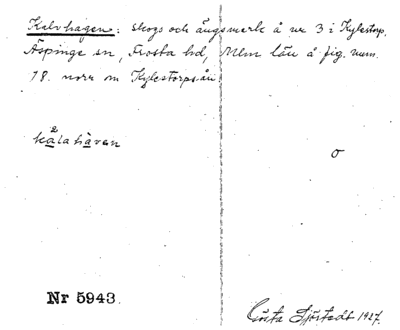 Kalvhagen: skogs och ängsmark å nr 3 i Kylestorp.
Äspinge sn, Frosta hd, Mlm län å fig. num.
18. norr om Kylestorpsån
kålahàven
o
Nr 5943.
Gösta Sjöstedt 1927.